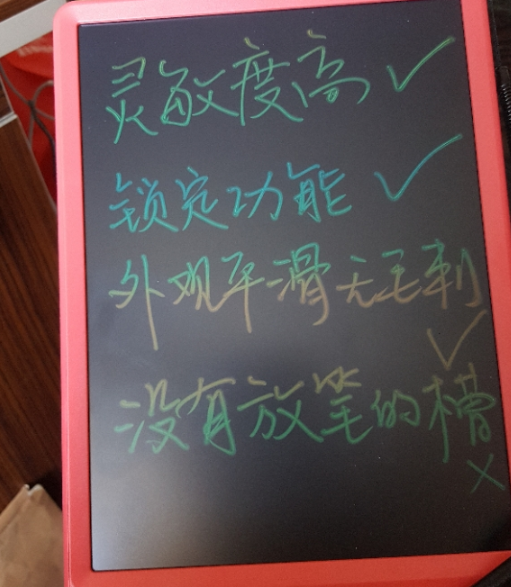 灵敏度高 ✓
锁定功能 ✓
外观平滑无毛刺
✓
没有放笔的槽
×